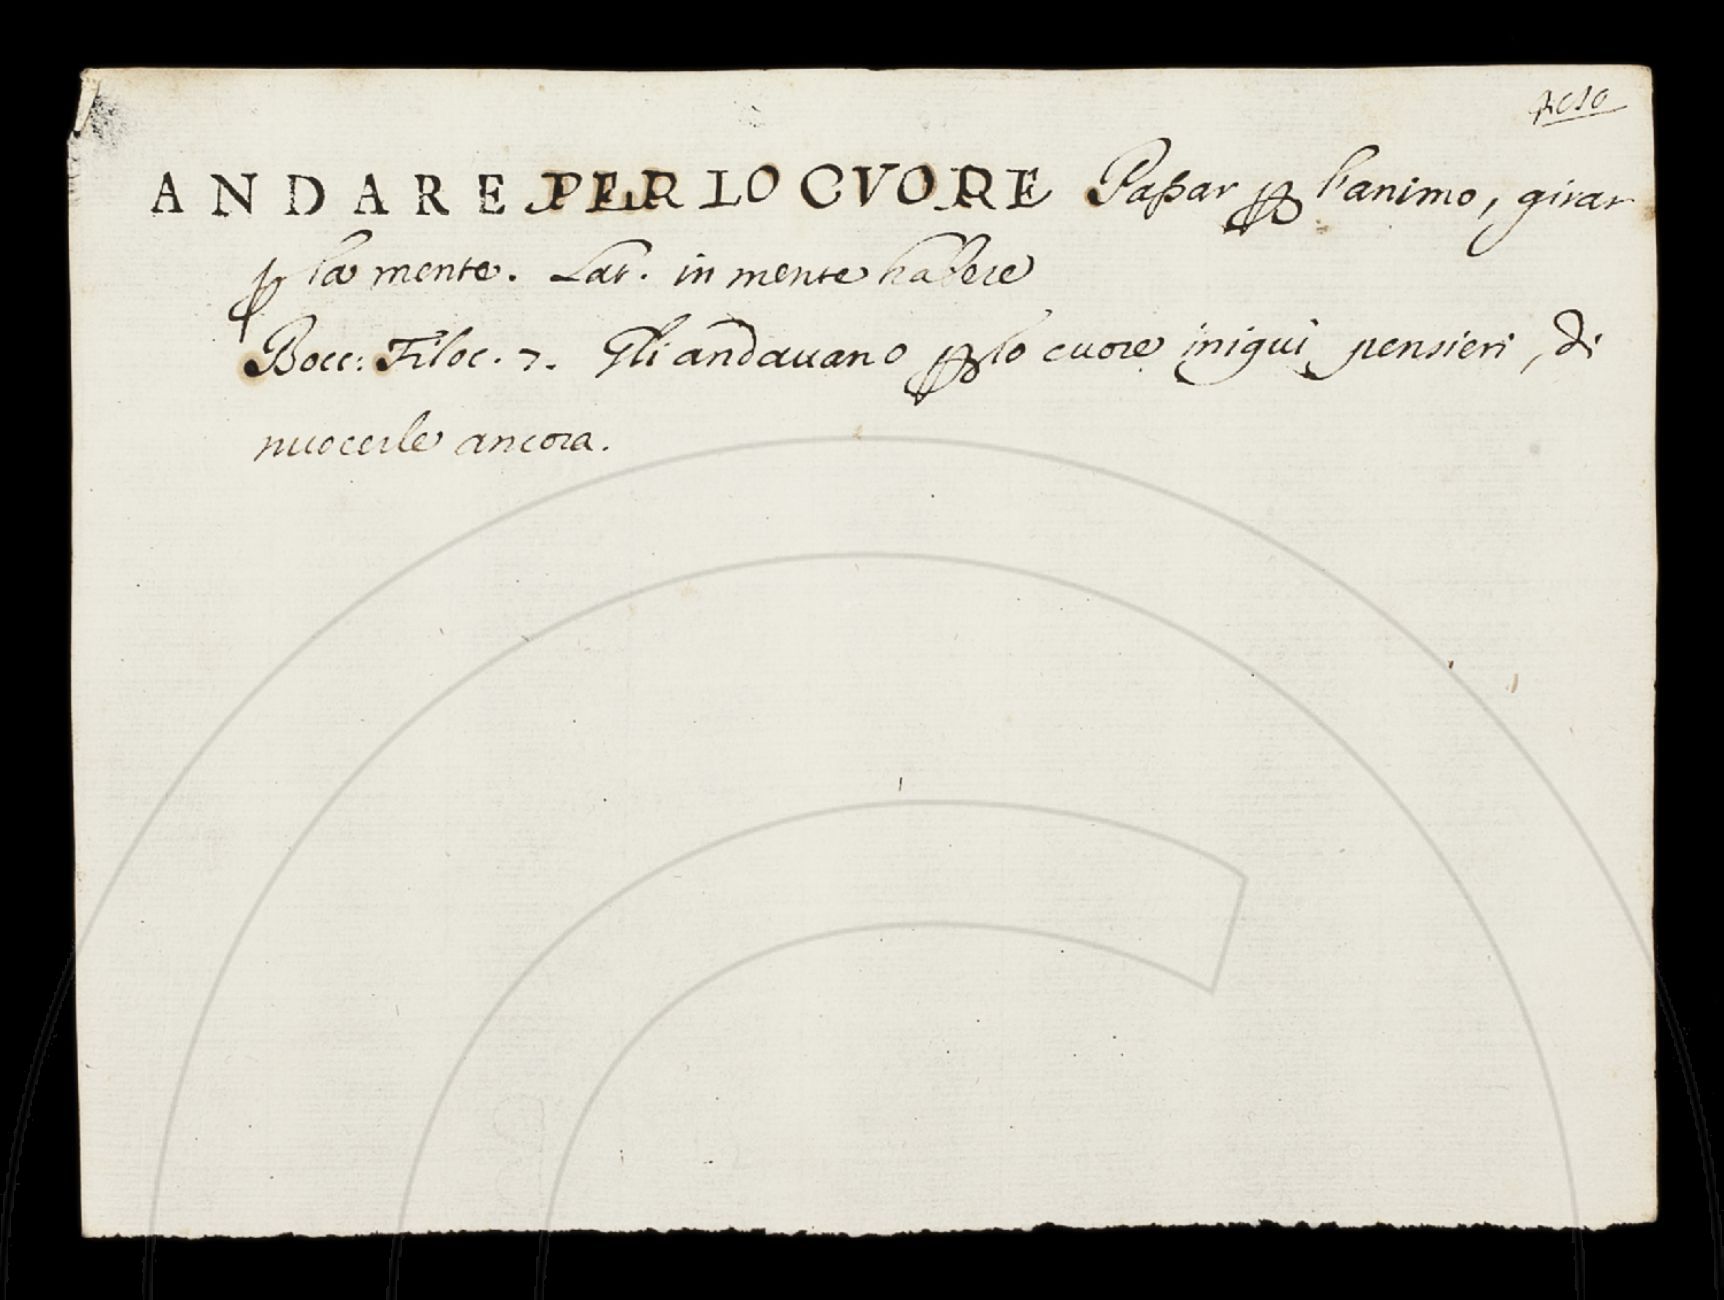 peso
ANDARE PER LO CVORE Paßar ꝑ l'animo, girar
ꝑ la mente. Lat. in mente habere
Bocc: Filoc. 7. Gli andauano ꝑ lo cuore iniqui pensieri, di
nuocerle ancora.